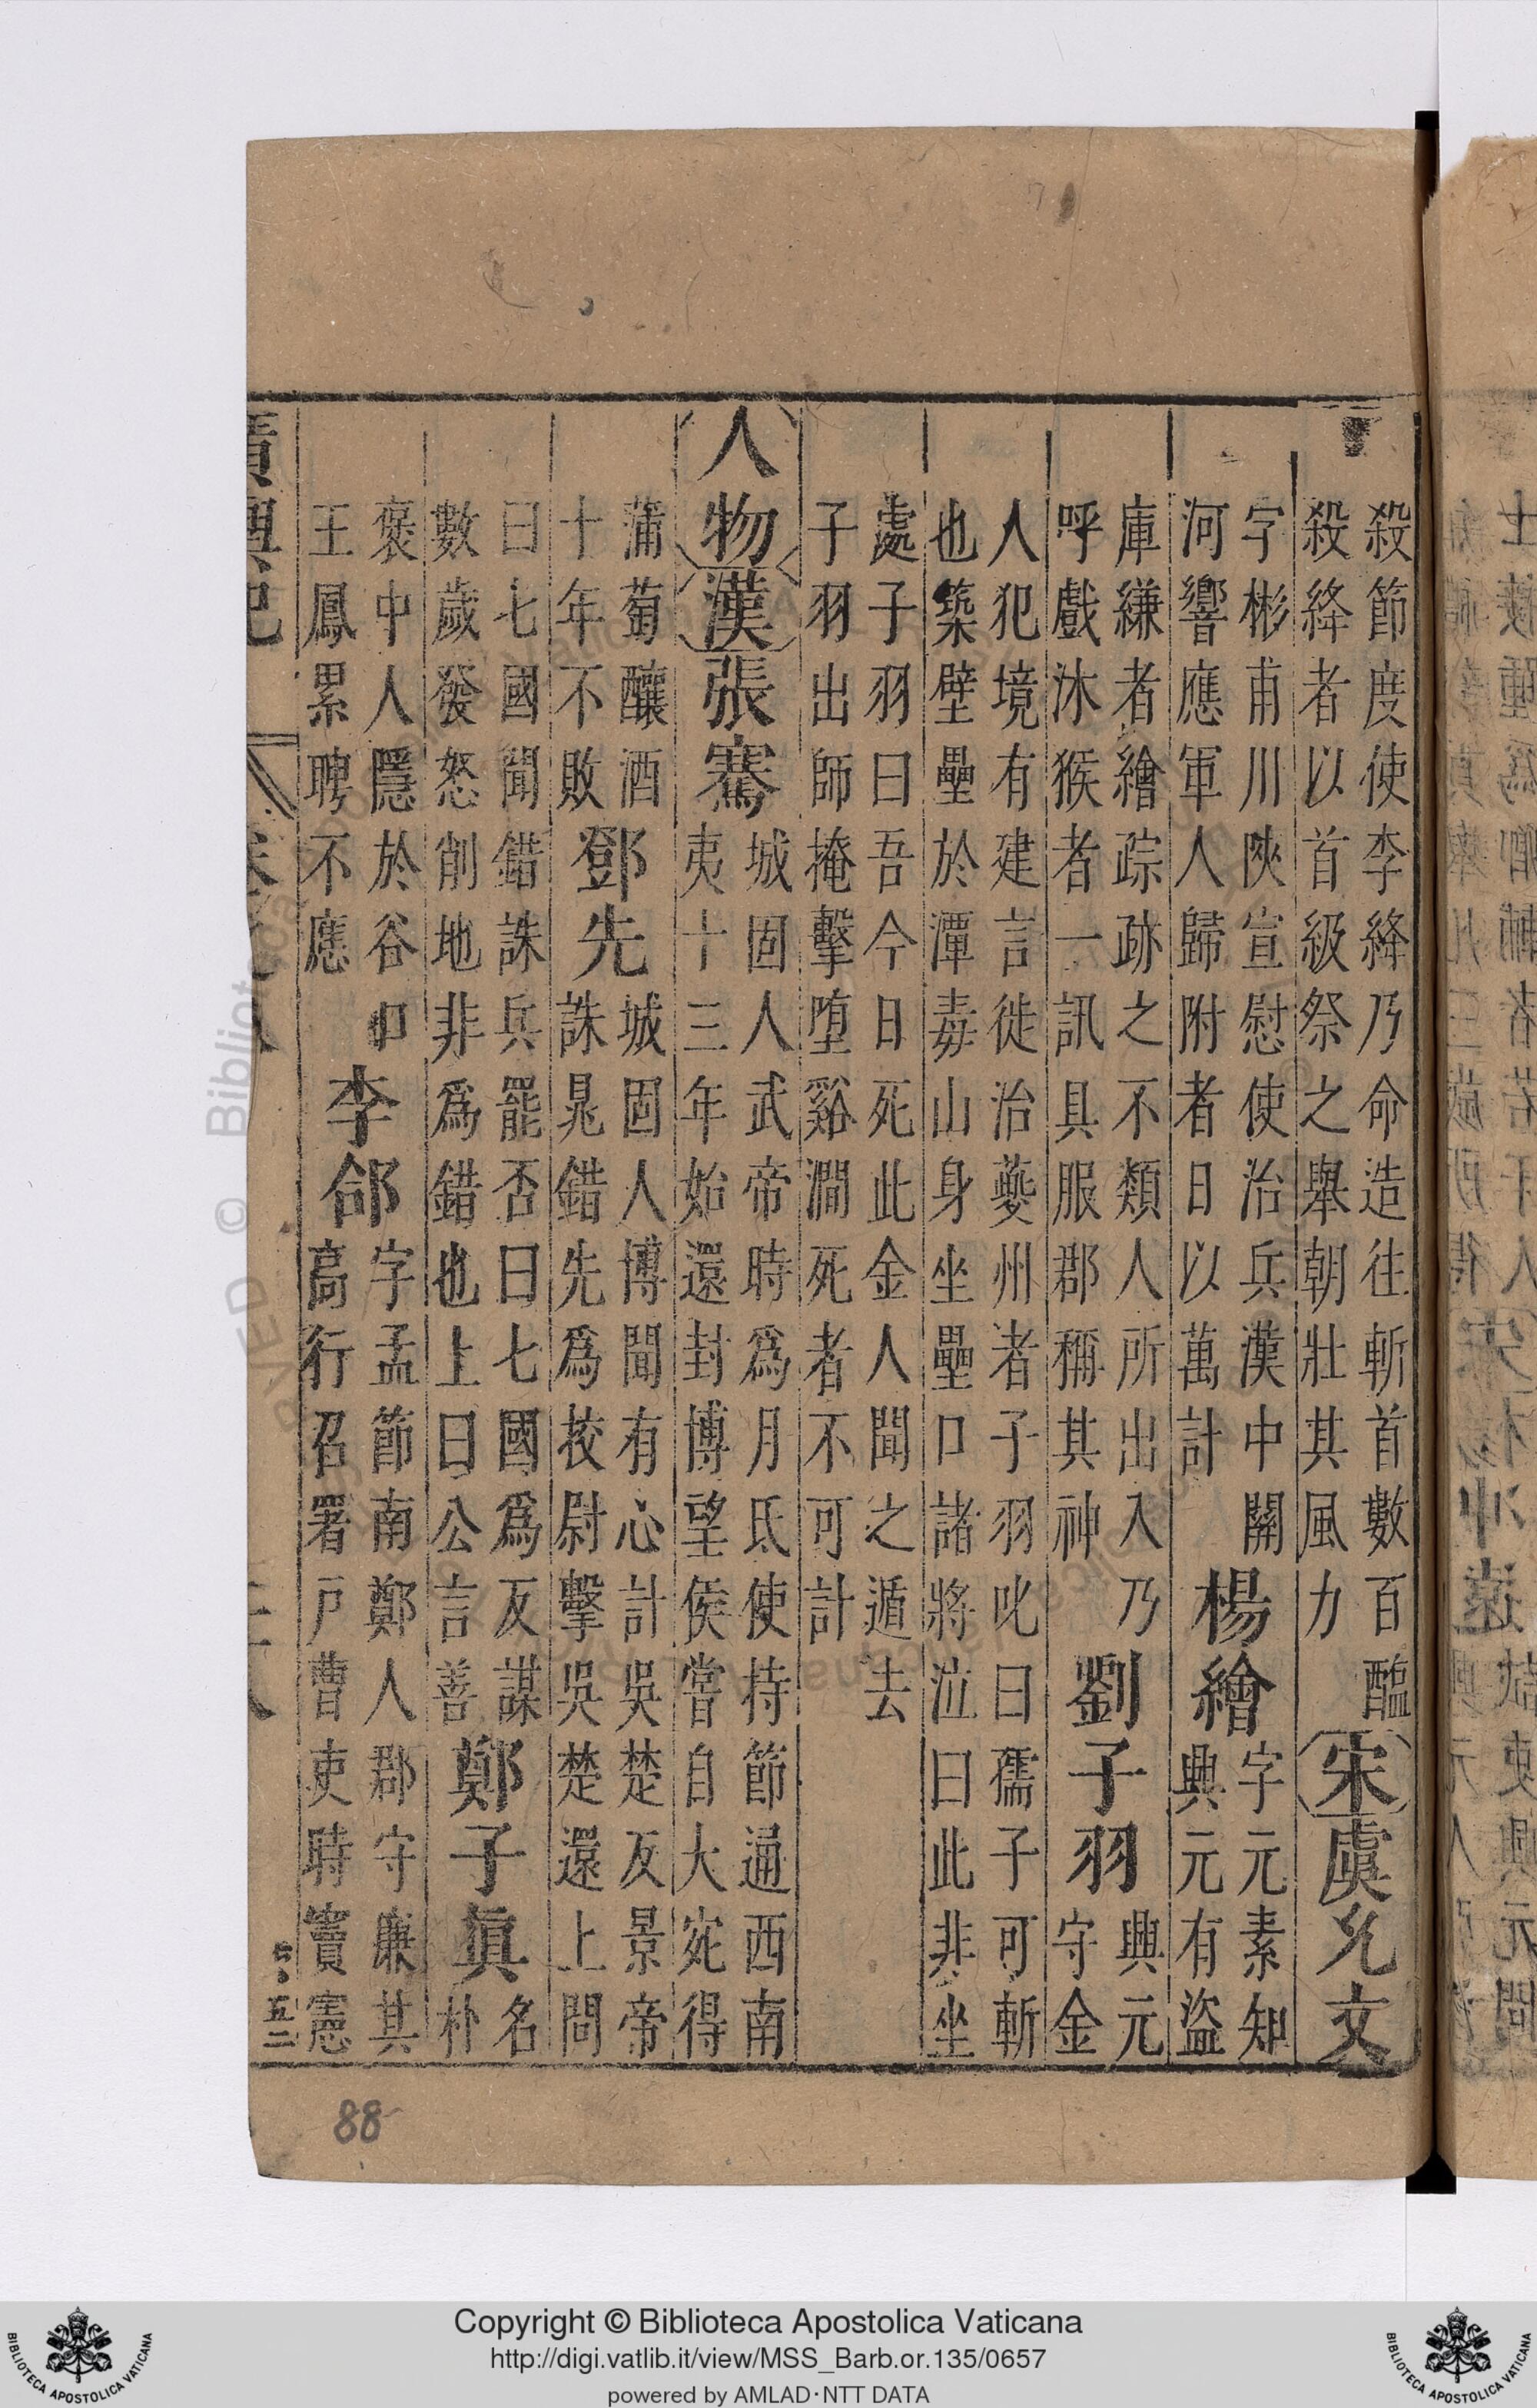 殺節度使李絳乃命造往斬首數百醢
殺絳者以首級祭之舉朝壯其風力
宋虞允文
字彬甫川陜宣慰使治兵漢中關
河響應軍人歸附者日以萬計
楊繪
字元素知
興元有盜
庫縑者繪踪跡之不類人所出入乃
呼戲沐猴者一訊具服郡稱其神
劉子羽
興元
守金
人犯境有建言徙治夔州者子羽叱曰孺子可斬
也築壁壘於潭毒山身坐壘口諸將泣曰此非坐
處子羽曰吾今日死此金人聞之遁去
子羽出師掩擊墮谿澗死者不可計
人物漢張騫
城固人武帝時爲月氏使持節通西南
夷十三年始還封博望侯嘗自大宛得
蒲萄釀酒
十年不敗
鄧先
城固人博聞有心計吳楚反景帝
誅晁錯先爲校尉擊吳楚還上問
曰七國聞錯誅兵罷否曰七國爲反謀
數歲發怒削地非爲錯也上曰公言善
鄭子眞
名
朴
褒中人隱於谷口
王鳳累聘不應
李郃
字孟節南鄭人郡守廉其
高行召署戶曹吏時竇憲
廣輿記
88
Copyright © Biblioteca Apostolica Vaticana
http://digi.vatlib.it/view/MSS_Barb.or.135/0657
powered by AMLAD·NTT DATA